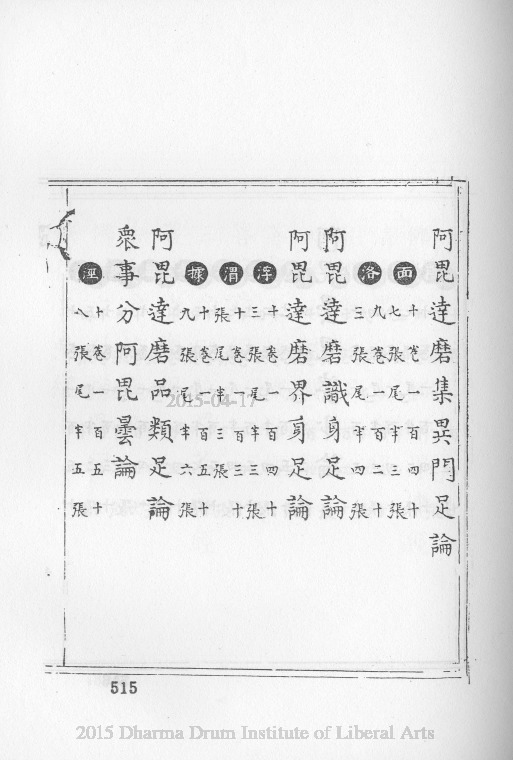 阿毘達磨集異門足論
面
十卷一百四十
七張尾半三張
洛
九卷一百二十
三張尾半四張
阿毘達磨識身足論
阿毘達磨界身足論
浮
十卷一百四十
三張尾半三張
渭
十卷一百三十
張尾半三張
據
十卷一百五十
九張尾半六張
阿毘達磨品類足論
眾事分阿毘曇論
涇
十卷一百五十
八張尾半五張
2015-04-17
515
2015 Dharma Drum Institute of Liberal Arts